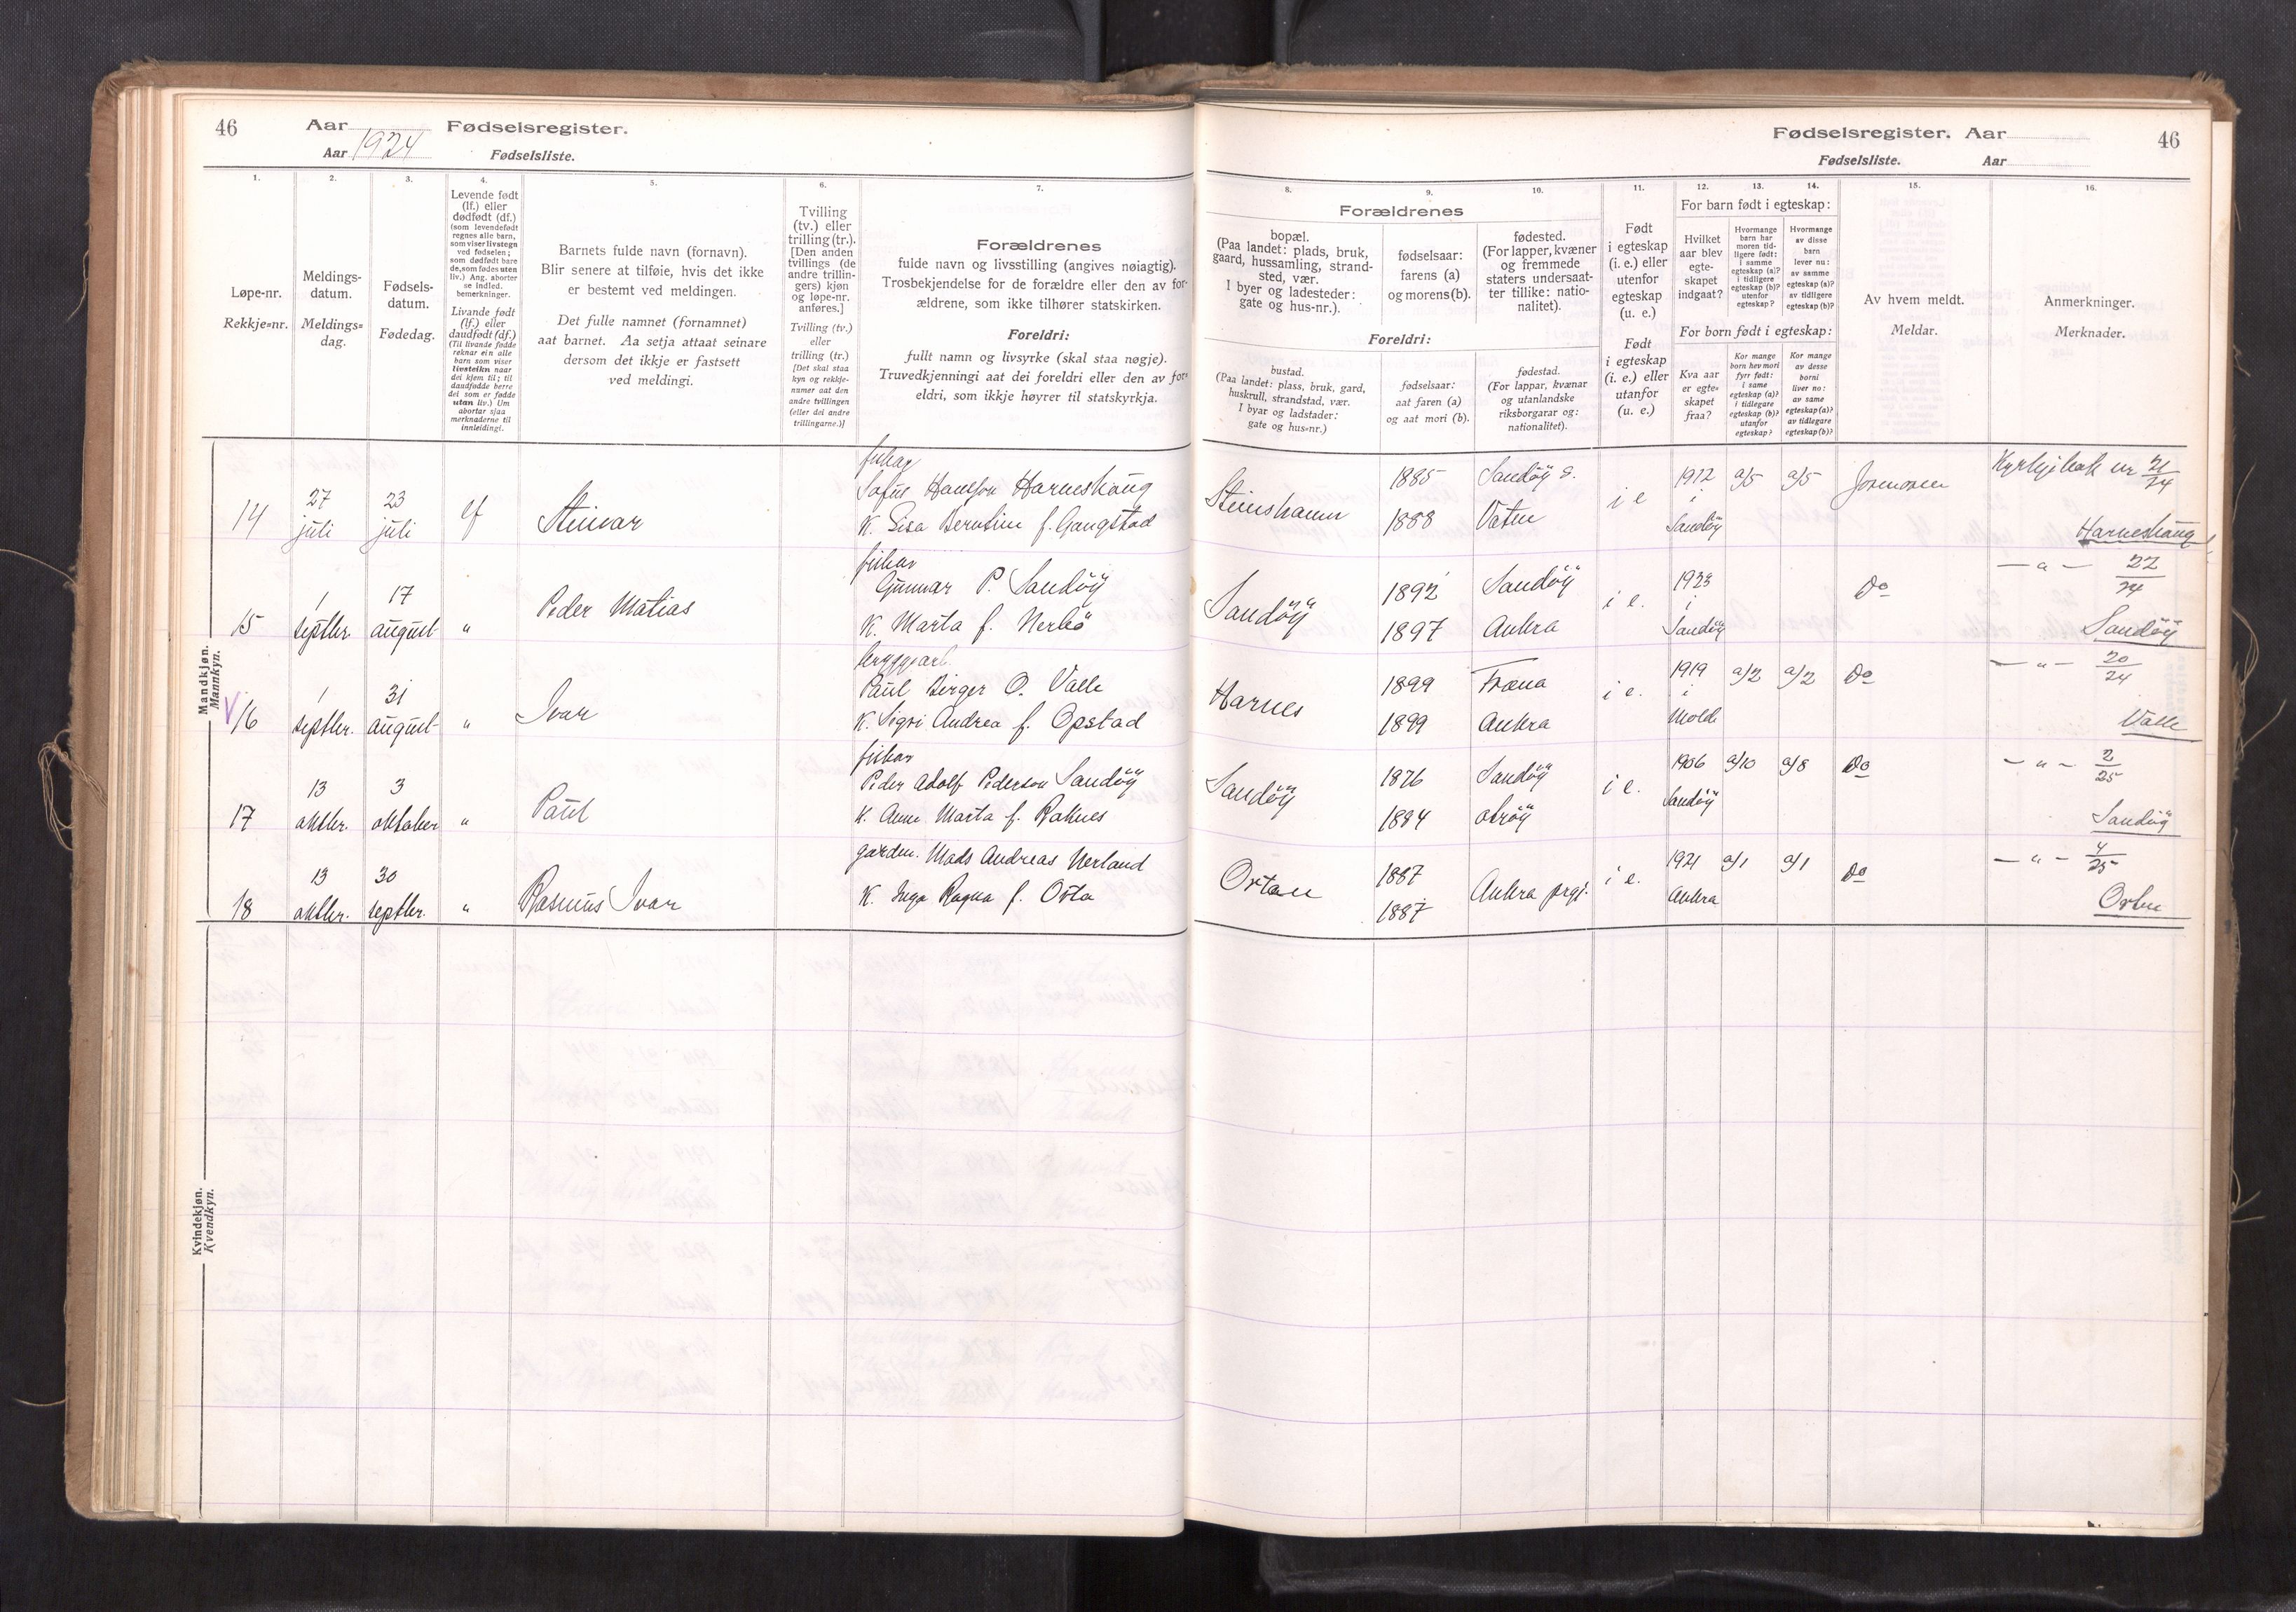 46 Aar Fødselsregister.
Aar 1924 Fødselsliste.
1. 2. 3. 4. 5. 6. 7.
Løpe-nr.
Rekkje=nr.
Meldings-
datum.
Meldings=
dag.
Fødsels-
datum.
Fødedag.
Levende født
(lf.) eller
dødfødt (df.)
(som levendefødt
regnes alle barn,
som viser livstegn
ved fødselen;
som dødfødt bare
de, som fødes uten
liv.) Ang. aborter
se indled.
bemerkninger.
Livande født
(lf.) eller
daudfødt (df.)
(Til livande fødde
reknar ein alle
barn som viser
livsteikn naar
dei kjem til; til
daudfødde berre
dei som er fødde
utan liv.) Um
abortar sjaa
merknaderne til
innleidingi.
Barnets fulde navn (fornavn).
Blir senere at tilføie, hvis det ikke
er bestemt ved meldingen.
Det fulle namnet (fornamnet)
aat barnet. Aa setja attaat seinare
dersom det ikkje er fastsett
ved meldingi.
Tvilling
(tv.) eller
trilling (tr.).
[Den anden
tvillings (de
andre trillin-
gers) kjøn
og løpe-nr.
anføres.]
Tvilling (tv.)
eller
trilling (tr.)
[Det skal staa
kyn og rekkje-
numer aat den
andre tvillingen
(eller dei andre
trillingarne.)]
Forældrenes
fulde navn og livsstilling (angives nøiagtig).
Trosbekjendelse for de forældre eller den av for-
ældrene, som ikke tilhører statskirken.
Foreldri:
fullt namn og livsyrke (skal staa nøgje).
Truvedkjenningi aat dei foreldri eller den av for-
eldri, som ikkje høyrer til statskyrkja.
Mandkjøn.
Mannkyn.
fiskar
14 27 juli 23 juli lf Steinar Sofus Hansson Harneshaug
K. Sisa Berntine f. Gangstad
fiskar
15 1 septbr. 17 august " Peder Matias Gunnar P. Sandøy
K. Marta f. Nerbø
16 1 septbr. 31 august " Ivar Paul Birger O. Valle
K. Sigri Andrea f. Opstad
fiskar
17 13 oktbr. 3 oktober " Paul Peder Adolf Pederson Sandøy
K. Anne Marta f. Raknes
18 13 oktbr. 30 septbr. " Rasmus Ivar gardm. Mads Andreas Nerland
K. Inga Ragna f. Orta
Kvindekjøn.
Kvendkyn.
Fødselsregister. Aar 46
Fødselsliste. Aar
8. 9. 10. 11. 12. 13. 14. 15. 16.
Forældrenes
bopæl.
(Paa landet: plads, bruk,
gaard, hussamling, strand-
sted, vær.
I byer og ladesteder:
gate og hus-nr.).
fødselsaar:
farens (a)
og morens (b).
fødested.
(For lapper, kvæner
og fremmede
staters undersaat-
ter tillike: natio-
nalitet).
Foreldri:
bustad.
(Paa landet: plass, bruk, gard,
huskrull, strandstad, vær.
I byar og ladstader:
gate og hus=nr.)
fødselsaar:
aat faren (a)
og aat mori (b).
fødestad.
(For lappar, kvænar
og utanlandske
riksborgarar og:
nationalitet).
Født
i egteskap
(i. e.) eller
utenfor
egteskap
(u. e.)
Født
i egteskap
(i. e.) eller
utanfor
(u. e.)
For barn født i egteskap:
Hvilket
aar blev
egte-
skapet
indgaat?
Hvormange
barn har
moren tid-
ligere født:
i samme
egteskap (a)?
i tidligere
egteskap (b)?
utenfor
egteskap?
Hvormange
av disse
barn
lever nu:
av samme
egteskap (a)?
av tidligere
egteskap (b)?
For born født i egteskap:
Kva aar
er egte=
skapet
fraa?
Kor mange
born hev mori
fyrr født:
i same
egteskap (a)?
i tidlegare
egteskap (b)?
utanfor
egteskap?
Kor mange
av desse
borni
liver no:
av same
egteskap (a)?
av tidlegare
egteskap (b)?
Av hvem meldt.
Meldar.
Anmerkninger.
Merknader.
Steinshamn 1885 Sandøy s. i e 1912 a/5 a/5 Jormoren Kyrkjebok nr 21/24
1888 Vatne i Sandøy Harneshaug
Sandøy 1892 Sandøy i e. 1923 Do — " — 22/24
1897 Aukra i Sandøy Sandøy
Harnes 1899 Fræna i e. 1919 a/2 a/2 Do — " — 20/24
1899 Aukra i Molde Valle
Sandøy 1876 Sandøy i e. 1906 a/10 a/8 Do — " — 2/25
1884 Sandøy Sandøy
Ortau 1887 Aukra prgj. i e. 1921 a/1 a/1 Do — " — 4/25
1887 Aukra Orten